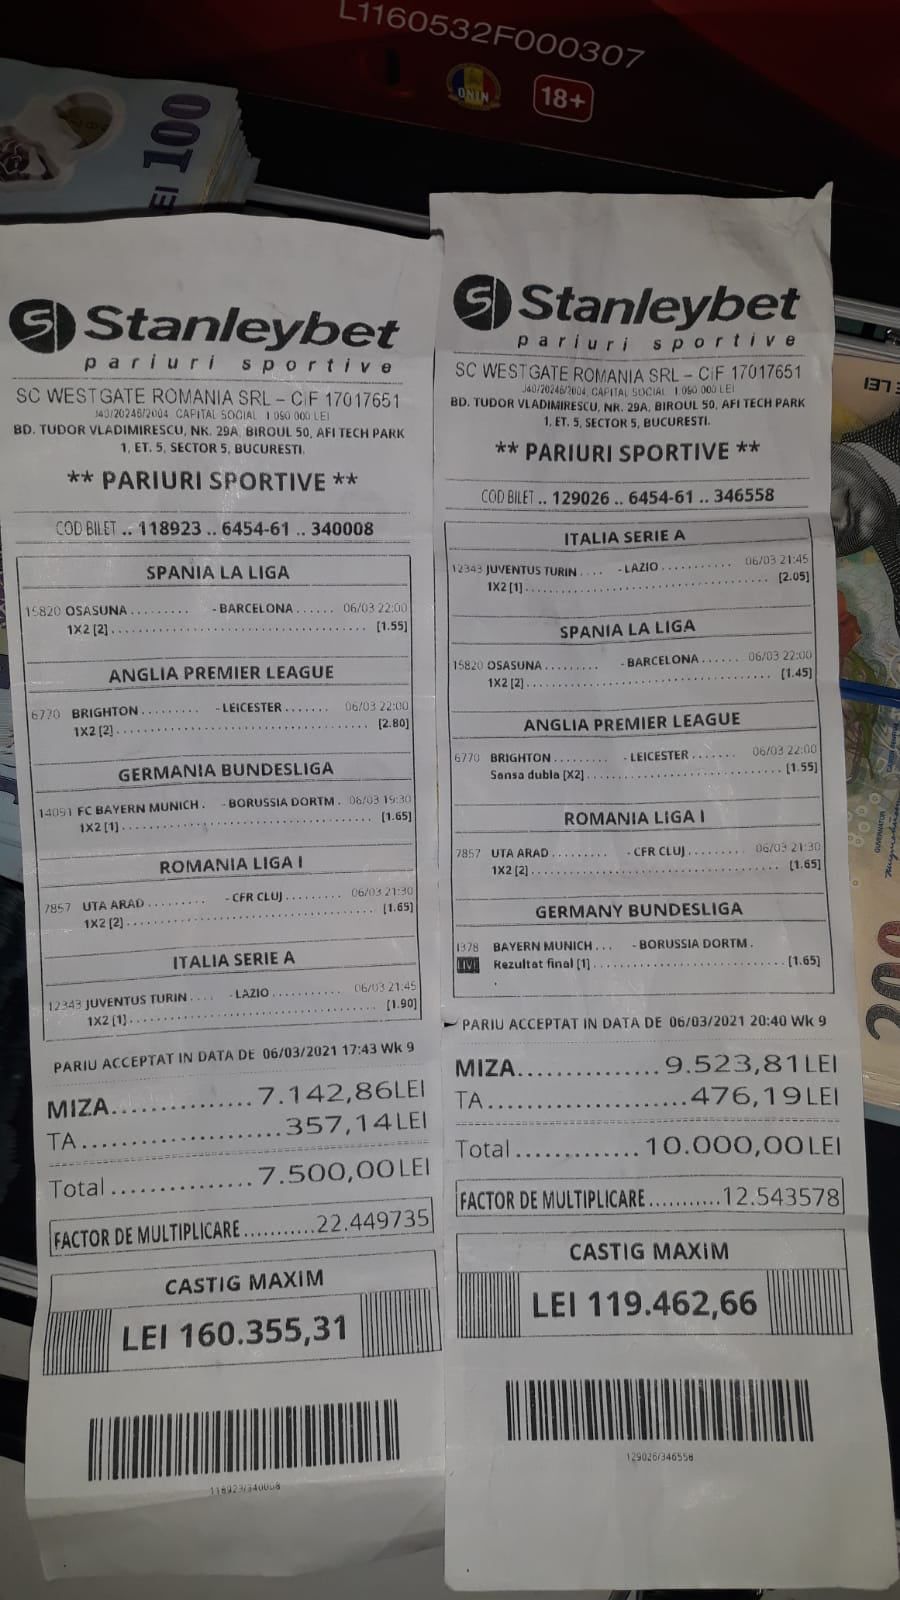 L1160532F000307
ONJN
18+
100
LEI
Stanleybet
pariuri sportive
SC WESTGATE ROMANIA SRL – CIF 17017651
J40/20246/2004, CAPITAL SOCIAL 1 090 000 LEI
BD. TUDOR VLADIMIRESCU, NR. 29A, BIROUL 50, AFI TECH PARK
1, ET. 5, SECTOR 5, BUCURESTI.
** PARIURI SPORTIVE **
COD BILET .. 118923 .. 6454-61 .. 340008
SPANIA LA LIGA
15820 OSASUNA ......... - BARCELONA ...... 06/03 22:00
1X2 [2] ........................................ [1.55]
ANGLIA PREMIER LEAGUE
6770 BRIGHTON ......... - LEICESTER ....... 06/03 22:00
1X2 [2] ........................................ [2.80]
GERMANIA BUNDESLIGA
14091 FC BAYERN MUNICH . - BORUSSIA DORTM . 06/03 19:30
1X2 [1] ........................................ [1.65]
ROMANIA LIGA I
7857 UTA ARAD ......... - CFR CLUJ ......... 06/03 21:30
1X2 [2] ........................................ [1.65]
ITALIA SERIE A
12343 JUVENTUS TURIN .... - LAZIO ........... 06/03 21:45
1X2 [1] ........................................ [1.90]
PARIU ACCEPTAT IN DATA DE 06/03/2021 17:43 Wk 9
MIZA ............... 7.142,86LEI
TA ..................... 357,14LEI
Total ............ 7.500,00LEI
FACTOR DE MULTIPLICARE ........... 22.449735
CASTIG MAXIM
LEI 160.355,31
118923/340008
Stanleybet
pariuri sportive
SC WESTGATE ROMANIA SRL – CIF 17017651
J40/20246/2004, CAPITAL SOCIAL 1 090 000 LEI
BD. TUDOR VLADIMIRESCU, NR. 29A, BIROUL 50, AFI TECH PARK
1, ET. 5, SECTOR 5, BUCURESTI.
** PARIURI SPORTIVE **
COD BILET .. 129026 .. 6454-61 .. 346558
ITALIA SERIE A
12343 JUVENTUS TURIN .... - LAZIO ........... 06/03 21:45
1X2 [1] ........................................ [2.05]
SPANIA LA LIGA
15820 OSASUNA ......... - BARCELONA ...... 06/03 22:00
1X2 [2] ........................................ [1.45]
ANGLIA PREMIER LEAGUE
6770 BRIGHTON ......... - LEICESTER ....... 06/03 22:00
Sansa dubla [X2] ............................... [1.55]
ROMANIA LIGA I
7857 UTA ARAD ......... - CFR CLUJ ......... 06/03 21:30
1X2 [2] ........................................ [1.65]
GERMANY BUNDESLIGA
1378 BAYERN MUNICH ... - BORUSSIA DORTM .
LIVE Rezultat final [1] ............................ [1.65]
PARIU ACCEPTAT IN DATA DE 06/03/2021 20:40 Wk 9
MIZA ............... 9.523,81LEI
TA ..................... 476,19LEI
Total ............. 10.000,00LEI
FACTOR DE MULTIPLICARE ........... 12.543578
CASTIG MAXIM
LEI 119.462,66
129026/346558
LEI
GUVERNATOR